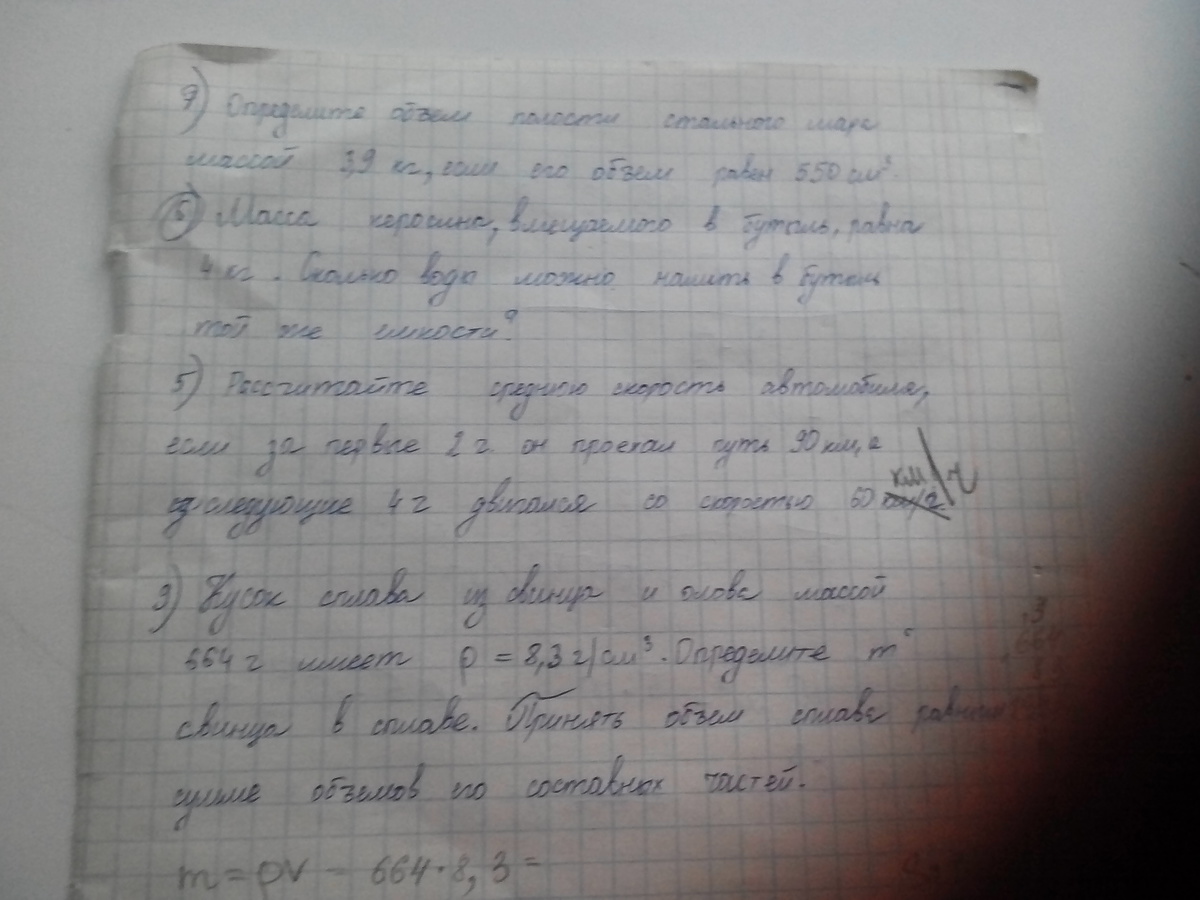 7) Определите объем полости стального шара
массой 3,9 кг, если его объем равен 550 см³.
6) Масса керосина, вмещаемого в бутыль, равна
4 кг. Сколько воды можно налить в бутыль
той же емкости?
5) Рассчитайте среднюю скорость автомобиля,
если за первые 2 г. он проехал путь 90 км, а
следующие 4 г двигался со скоростью 60 км/ч
9) Кусок сплава из свинца и олова массой
664 г имеет ρ = 8,3 г/см³. Определите m
свинца в сплаве. Принять объем сплава равным
сумме объемов его составных частей.
m = ρV = 664 · 8,3 =